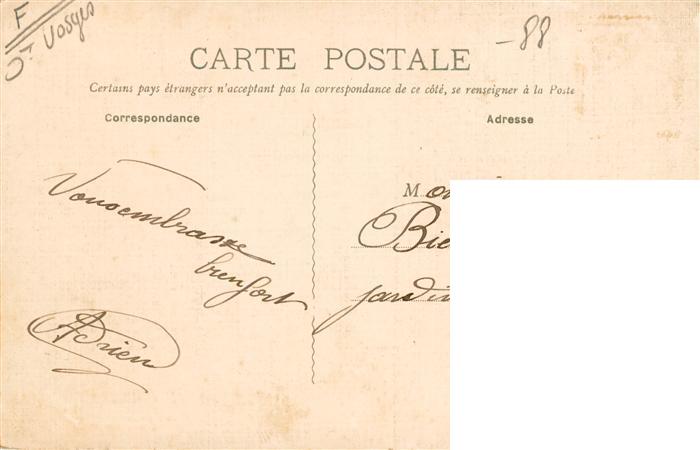 F
Dt Vosges
-88
CARTE POSTALE
Certains pays étrangers n'acceptant pas la correspondance de ce côté, se renseigner à la Poste
Correspondance
Adresse
Vous embrasse
bien fort
Adrien
Mon
Bie
jardi